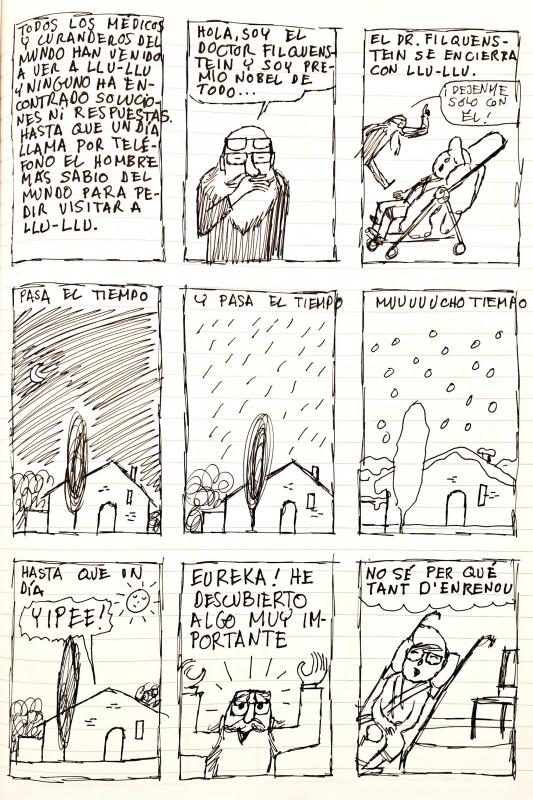 TODOS LOS MÉDICOS
Y CURANDEROS DEL
MUNDO HAN VENIDO
A VER A LLU-LLU
Y NINGUNO HA EN-
CONTRADO SOLUCIO-
NES NI RESPUESTAS.
HASTA QUE UN DÍA
LLAMA POR TELÉ-
FONO EL HOMBRE
MÁS SABIO DEL
MUNDO PARA PE-
DIR VISITAR A
LLU-LLU.
HOLA, SOY EL
DOCTOR FILQUENS-
TEIN Y SOY PRE-
MIO NOBEL DE
TODO...
EL DR. FILQUENS-
TEIN SE ENCIERRA
CON LLU-LLU.
¡DEJENME
SOLO CON
ÉL!
PASA EL TIEMPO
Y PASA EL TIEMPO
MUUUUUCHO TIEMPO
HASTA QUE UN
DÍA
YIPEE!
EUREKA! HE
DESCUBIERTO
ALGO MUY IM-
PORTANTE
NO SÉ PER QUÉ
TANT D'ENRENOU